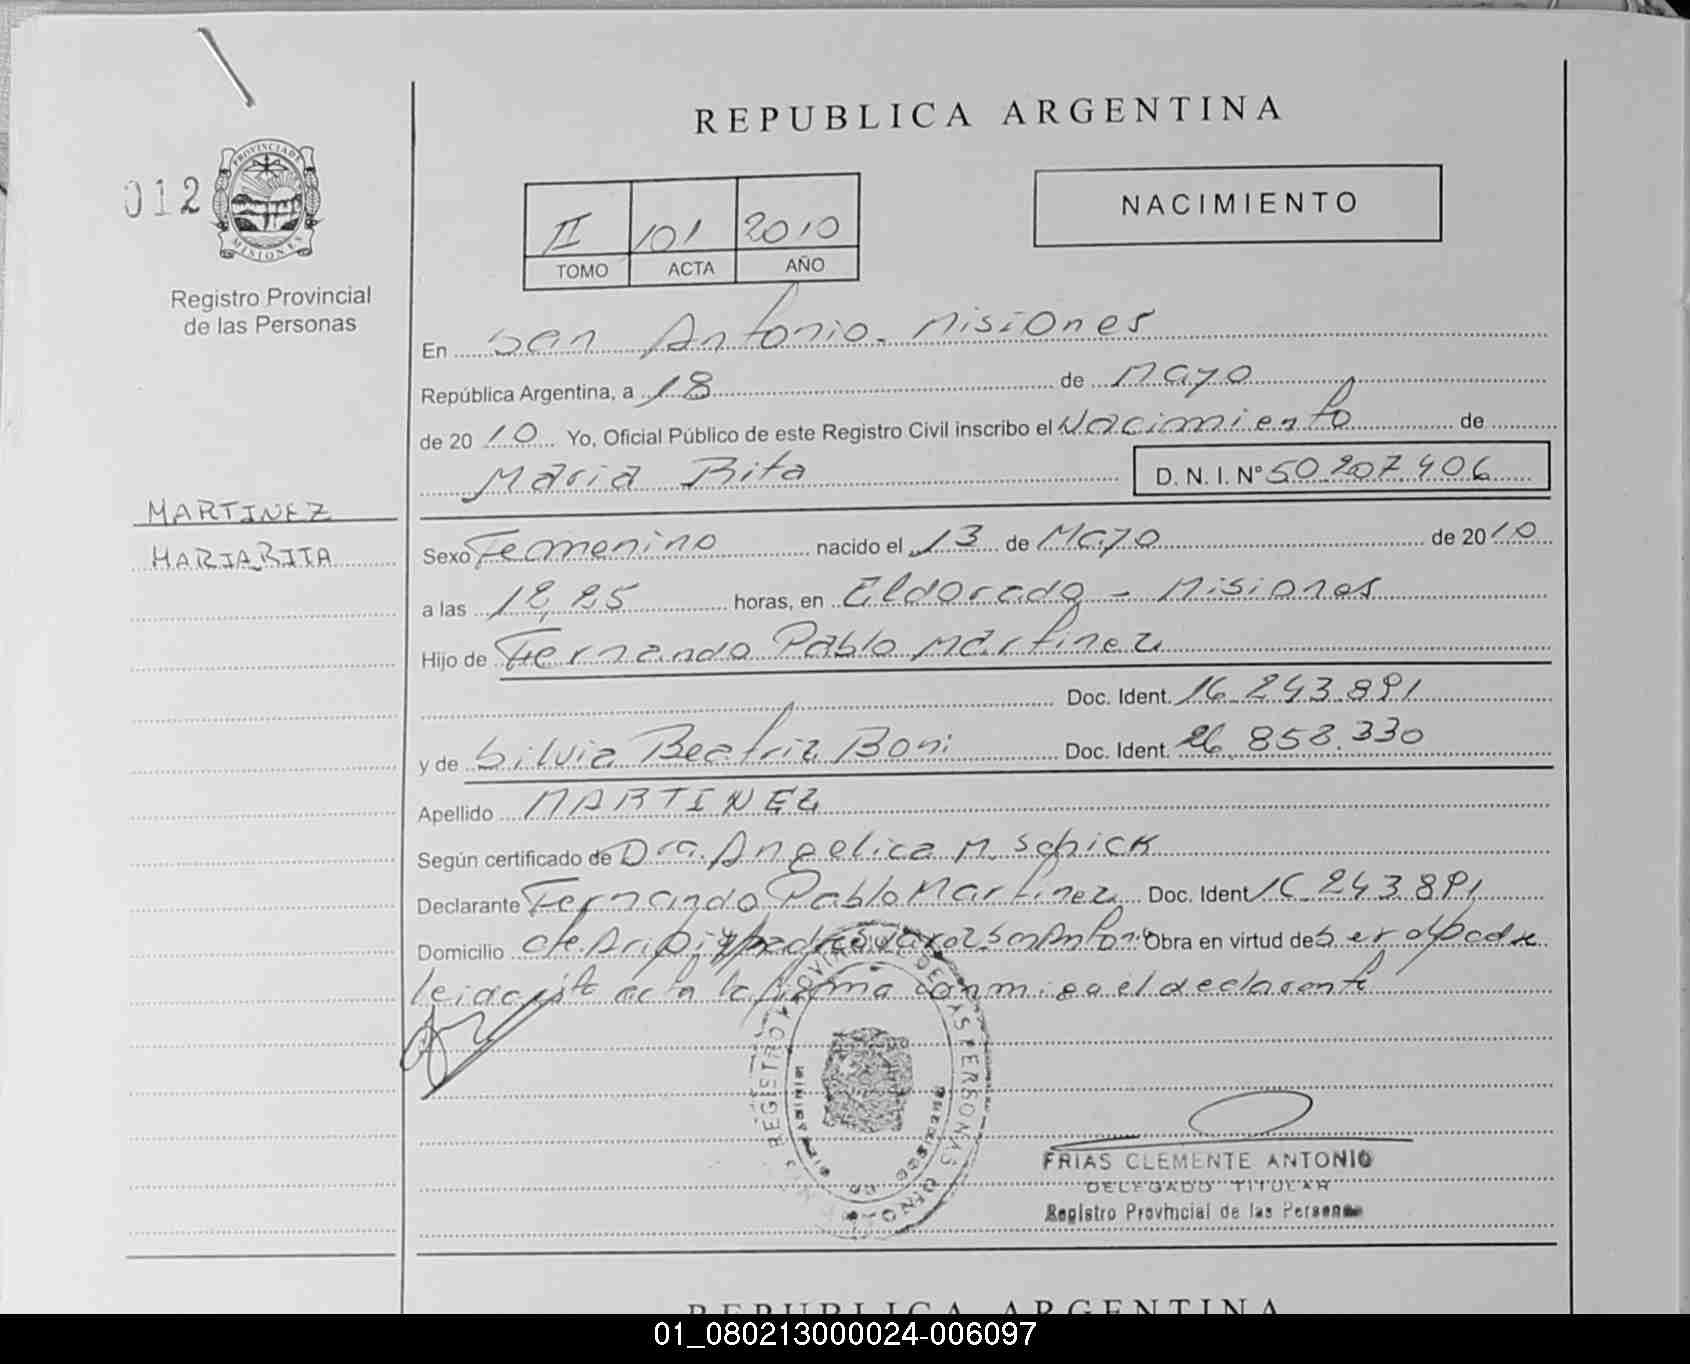 REPUBLICA ARGENTINA
012
PROVINCIA DE
MISIONES
Registro Provincial
de las Personas
II 101 2010
TOMO ACTA AÑO
NACIMIENTO
En San Antonio. Misiones
República Argentina, a 18 de Mayo
de 2010 Yo, Oficial Público de este Registro Civil inscribo el Nacimiento de
Maria Rita D. N. I. N° 50.207.406
MARTINEZ
MARIA RITA
Sexo Femenino nacido el 13 de Mayo de 2010
a las 12,25 horas, en Eldorado - Misiones
Hijo de Fernando Pablo Martinez
Doc. Ident. 16.243.891
y de Silvia Beatriz Boni Doc. Ident. 26.858.330
Apellido MARTINEZ
Según certificado de Dra. Angelica M. Schick
Declarante Fernando Pablo Martinez Doc. Ident 16.243.891
Domicilio San Antonio Obra en virtud de Ser el padre
leida acta la firma conmigo el declarante
REGISTRO PROVINCIAL DE LAS PERSONAS
FRIAS CLEMENTE ANTONIO
DELEGADO TITULAR
Registro Provincial de las Personas
REPUBLICA ARGENTINA
01_080213000024-006097